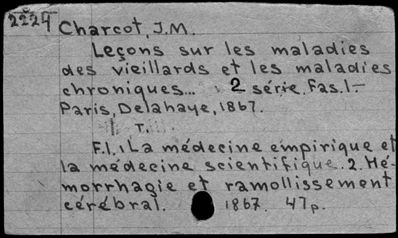 2224
Charcot, J.M.
Leçons sur les maladies
des vieillards et les maladies
chroniques... 2 série. Fas. 1.-
Paris, Delahaye, 1867.
T.
F.1.: La médecine empirique et
la médecine scientifique. 2. Hé-
morrhagie et ramollissement
cérébral. 1867. 47p.